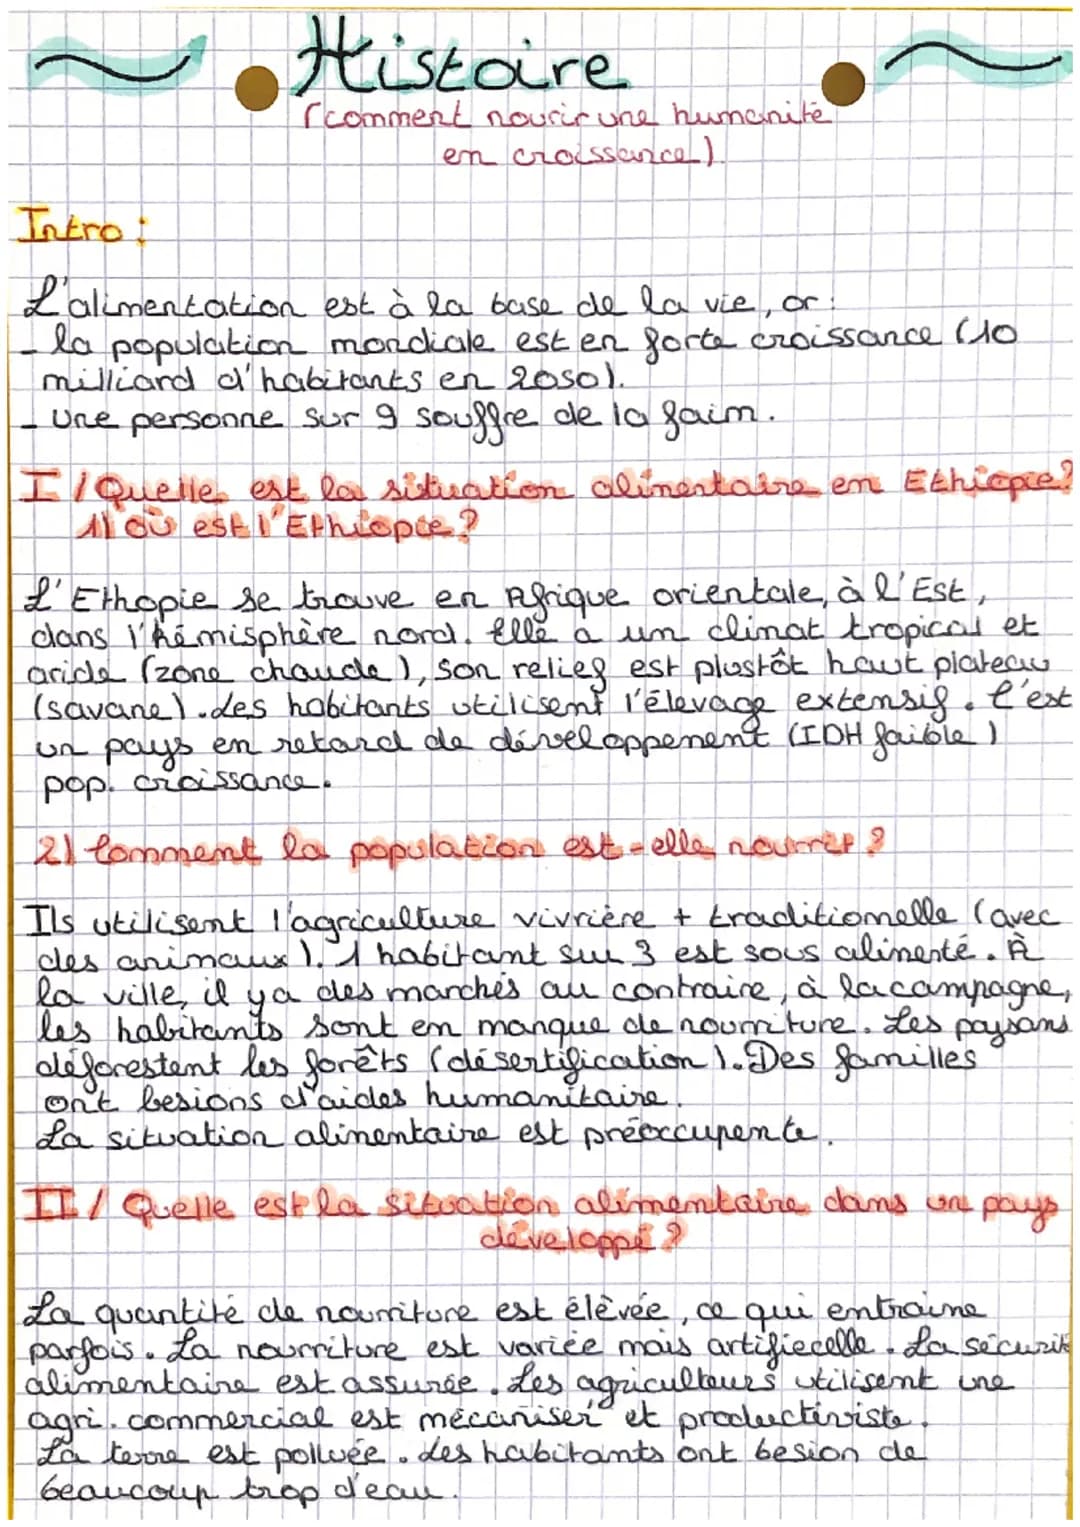 Histoire
(comment nourir une humanité
en croissance).
Intro :
L'alimentation est à la base de la vie, or :
- la population mondiale est en forte croissance (10
milliard d'habitants en 2050).
- une personne sur 9 souffre de la faim.
I / Quelle est la situation alimentaire en Ethiopie ?
1) où est l'Ethiopie ?
L'Ethopie se trouve en Afrique orientale, à l'Est,
dans l'hémisphère nord. Elle a un climat tropical et
aride (zone chaude), son relief est plustôt haut plateau
(savane). Les habitants utilisent l'élevage extensif. C'est
un pays en retard de développement (IDH faible)
pop. croissance.
2) Comment la population est-elle nourrit ?
Ils utilisent l'agriculture vivrière + traditionelle (avec
des animaux). 1 habitant sur 3 est sous alimenté. À
la ville, il y a des marchés au contraire, à la campagne,
les habitants sont en manque de nourriture. Les paysans
déforestent les forêts (désertification). Des familles
ont besions d'aides humanitaire.
La situation alimentaire est préoccupente.
II / Quelle est la situation alimentaire dans un pays
développé ?
La quantité de nourriture est élèvée, ce qui entraine
parfois. La nourriture est variée mais artifiecelle. La sécurité
alimentaire est assurée. Les agriculteurs utilisent une
agri. commercial est mécaniser et productiviste.
La terre est polluée. Les habitants ont besion de
beaucoup trop d'eau.